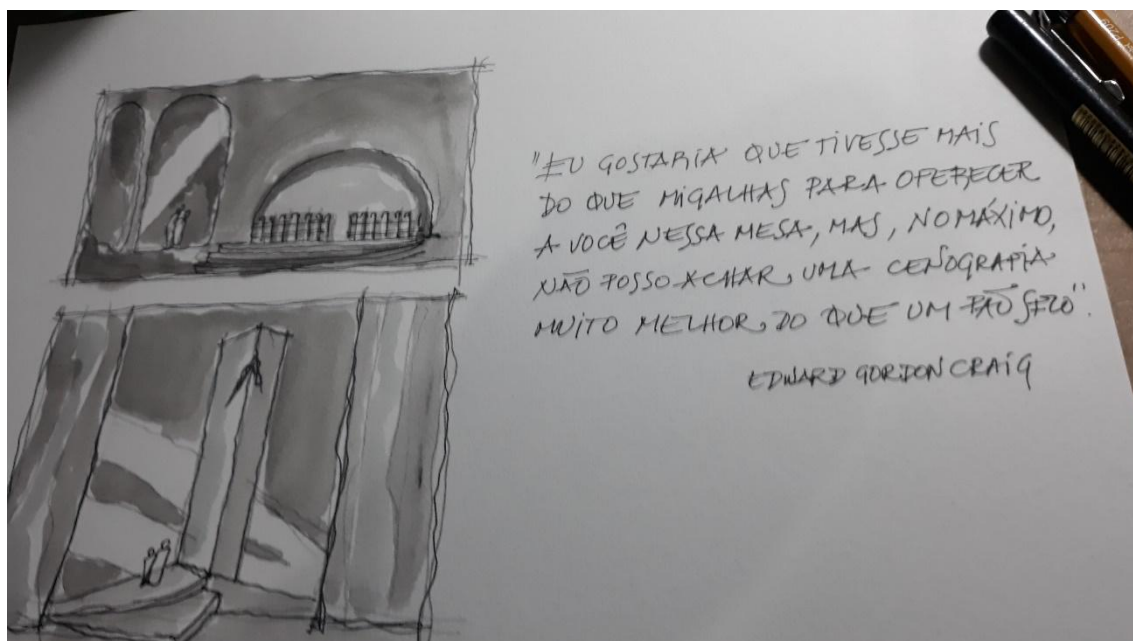 "EU GOSTARIA QUE TIVESSE MAIS
DO QUE MIGALHAS PARA OFERECER
A VOCÊ NESSA MESA, MAS, NO MÁXIMO,
NÃO POSSO ACHAR UMA CENOGRAFIA
MUITO MELHOR DO QUE UM PÃO SECO".
EDWARD GORDON CRAIG